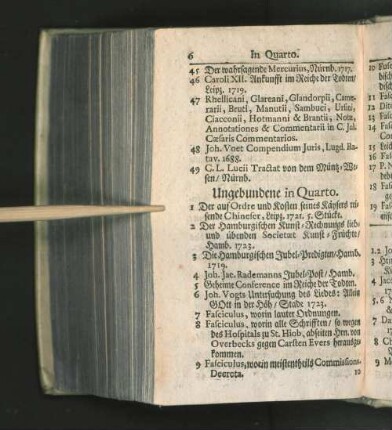 6 In Quarto.
45 Der wahrsagende Mercurius, Nürnb. 1717.
46 Caroli XII. Ankunfft im Reiche der Todten/
Leipz. 1719.
47 Rhellicani, Glareani, Glandorpii, Came-
rarii, Bruti, Manutii, Sambuci, Ursini,
Ciacconii, Hotmanni & Brantii, Notæ,
Annotationes & Commentarii in C. Jul.
Cæsaris Commentarios.
48 Joh. Voet Compendium Juris, Lugd. Ba-
tav. 1688.
49 C. L. Lucii Tractat von dem Müntz-We-
sen/ Nürnb.
Ungebundene in Quarto.
1 Der auf Ordre und Kosten seines Käysers rei-
sende Chineser, Leipz. 1721. 5. Stückt.
2 Der Hamburgischen Kunst-Rechnungs lieb-
und übenden Societæt Kunst-Früchte/
Hamb. 1723.
3 Die Hamburgischen Jubel-Predigten/ Hamb.
1719.
4 Joh. Jac. Rademanns Jubel-Post/ Hamb.
5 Geheime Conference im Reiche der Todten.
6 Joh. Vogts Untersuchung des Liedes: Allein
GOtt in der Höh/ Stade 1723.
7 Fasciculus, worin lauter Ordnungen.
8 Fasciculus, worin alle Schrifften/ so wegen
des Hospitals zu St. Hiob, abseiten Hrn. von
Overbecks gegen Carsten Evers herauszu-
kommen.
9 Fasciculus, worin meistentheils Commissions-
Decreta.
10